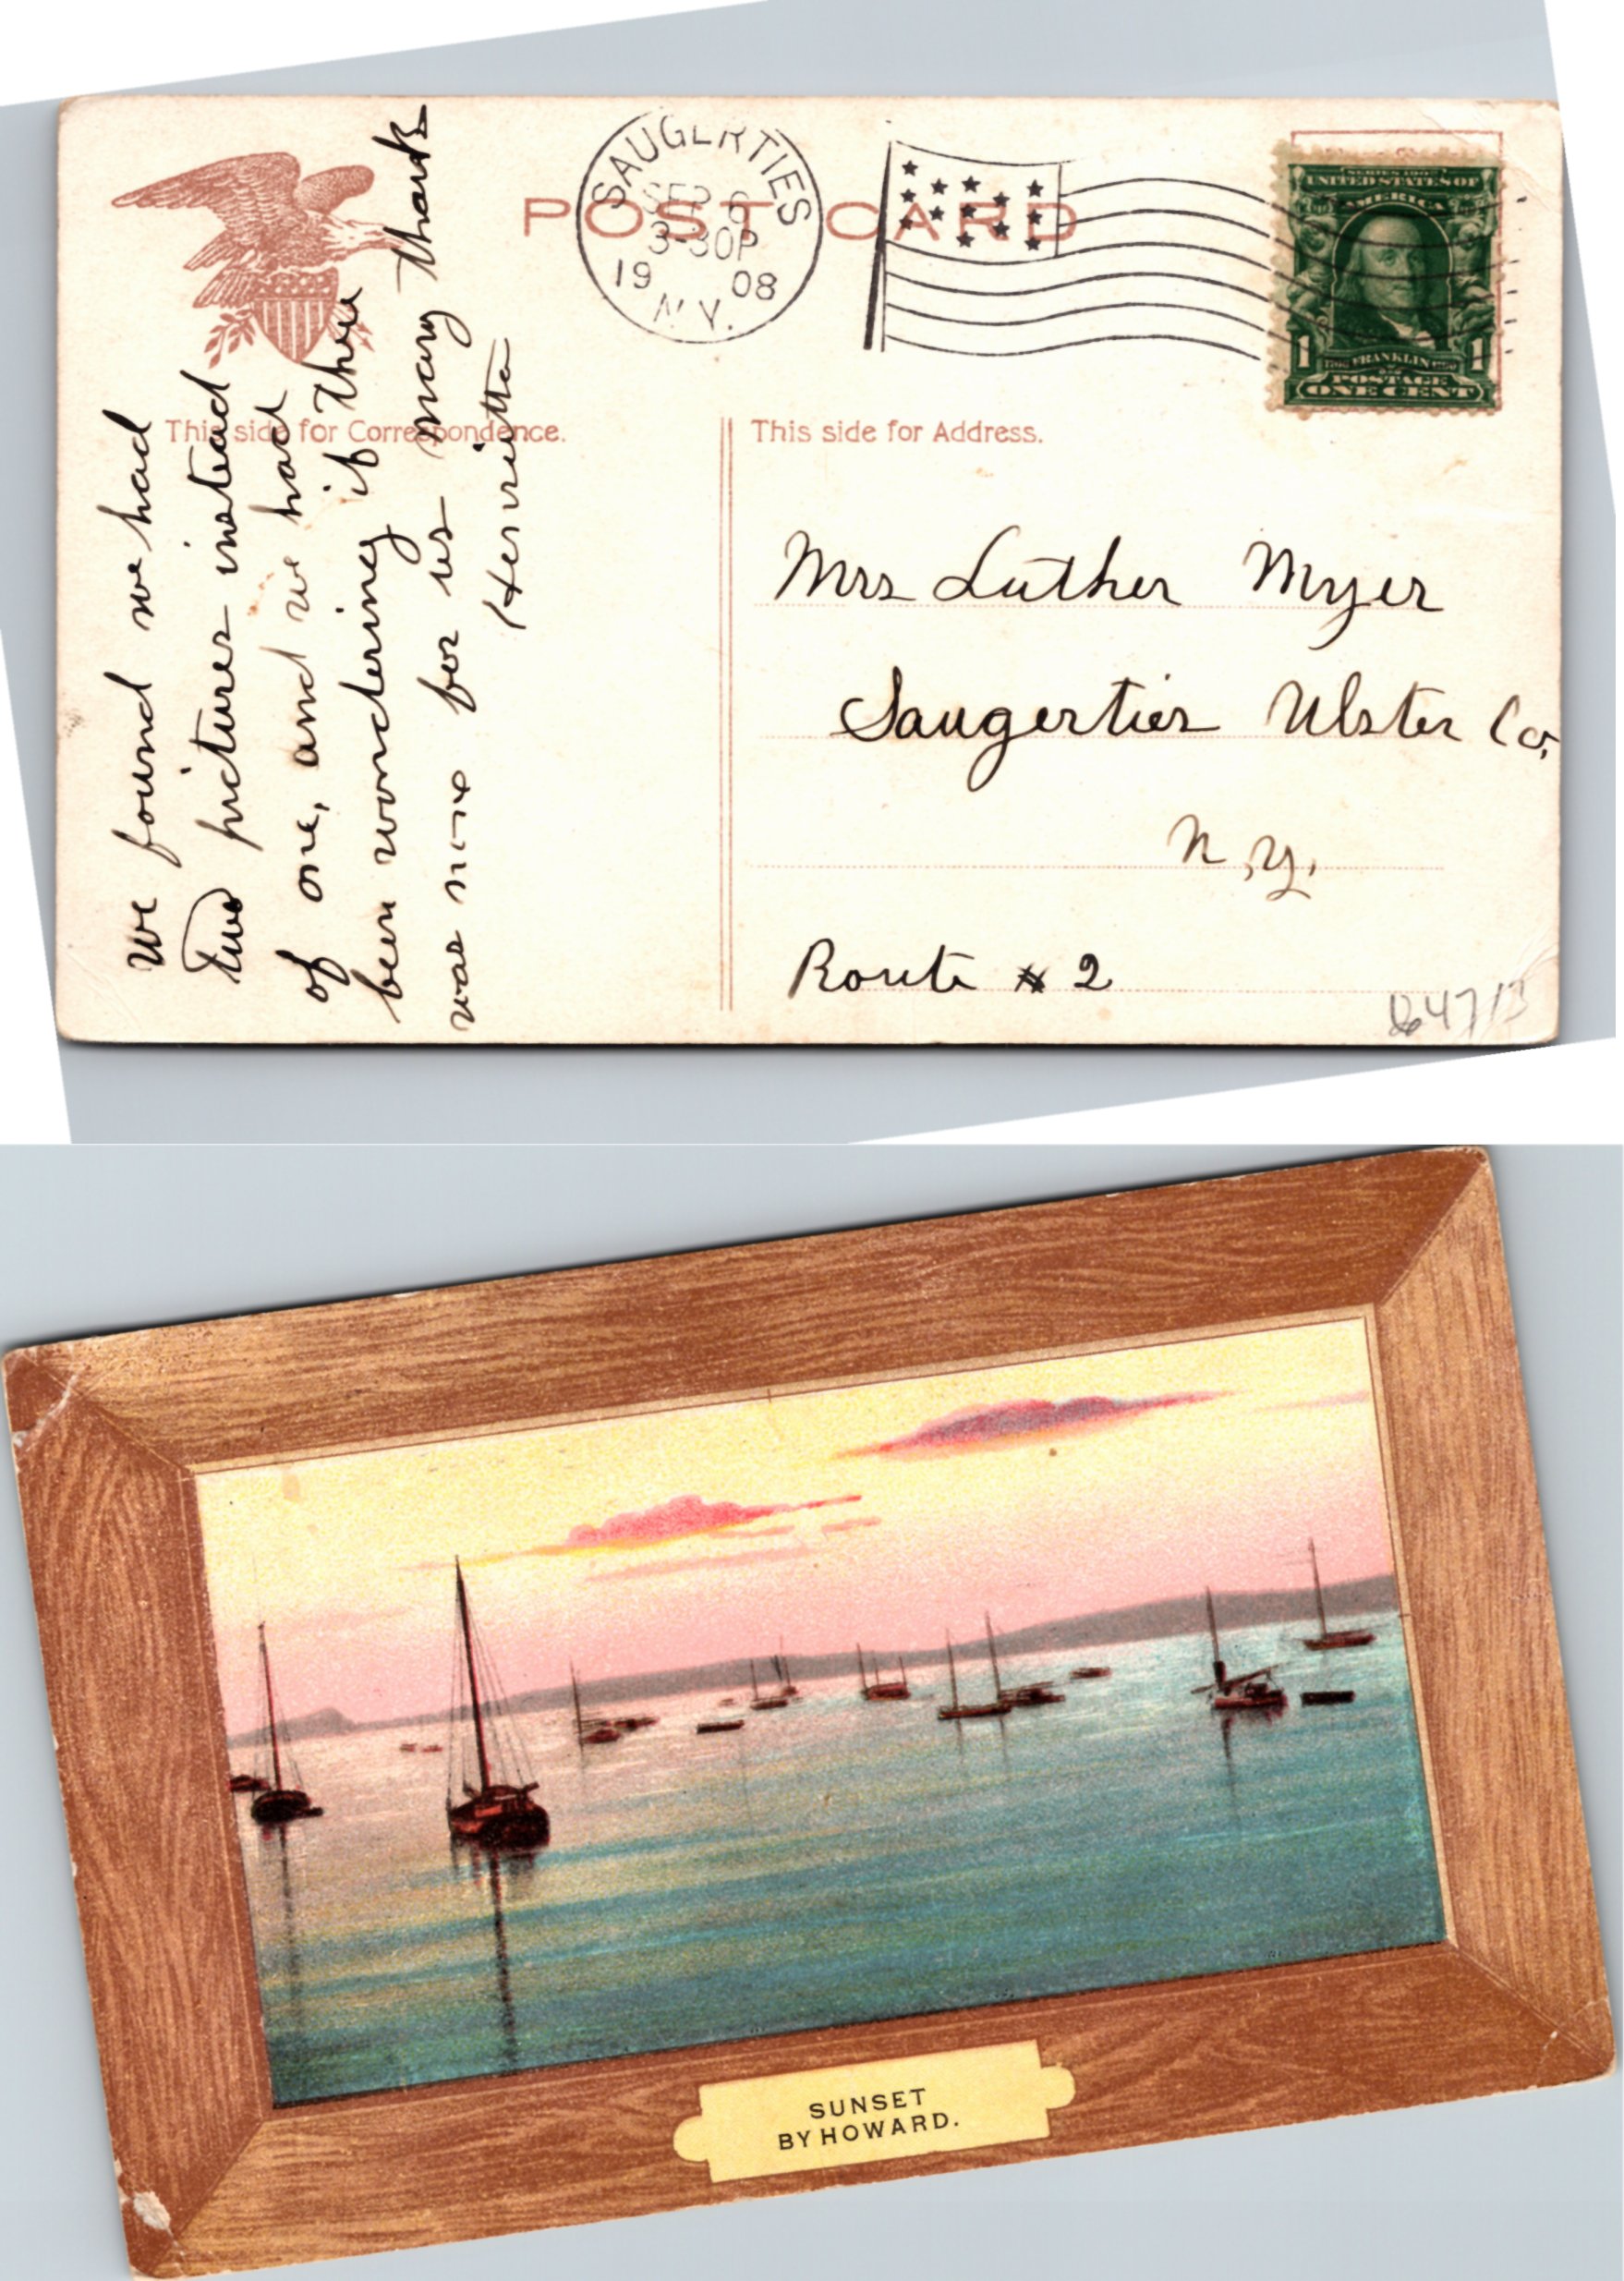 POST CARD
SAUGERTIES
SEP 6
3-30P
19 08
N.Y.
SERIES 1902
UNITED STATES OF
AMERICA
FRANKLIN
POSTAGE
ONE CENT
1 1
This side for Correspondence.
This side for Address.
We found we had
two pictures instead
of one, and we had
been wondering if there
was none for us many thanks
Henrietta
Mrs Luther Myer
Saugerties Ulster Co,
N.Y.
Route # 2
SUNSET
BY HOWARD.